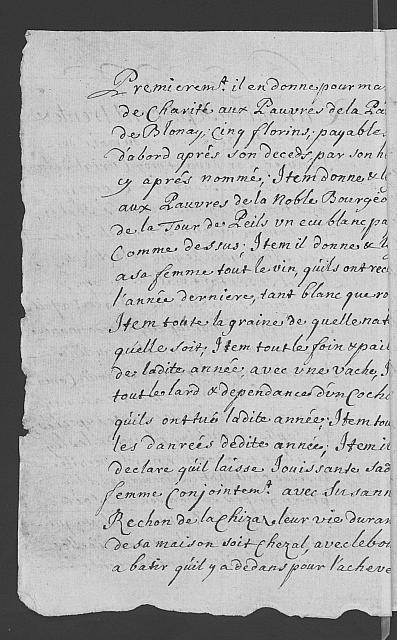 Premierem.t il en donne pour ma
de Charité aux Pauvres de la Pa
de Blonay, Cinq florins, payable
d'abord aprés son deceds, par son h
cy aprés nommé; Item donne & l
aux Pauvres de la Noble Bourgeo
de la Tour de Peils vn ecu blanc pa
Comme dessus; Item il donne & l
a sa femme tout le vin, qu'ils ont rec
l'année derniere, tant blanc que ro
Item toute la graine de quelle nat
quelle soit; Item tout le foin & pail
de ladite année, avec vne vache, I
tout le lard & dependances d'vn Coch
qu'ils ont tué ladite année; Item tou
les danreés dédite année; Item il
declare qu'il laisse Jouissante sad
femme Conjointem.t avec Susann
Rechon de la Chizaz leur vie duran
de sa maison soit Chezal, avec le boi
a batir qu'il y a dedans pour l'acheve